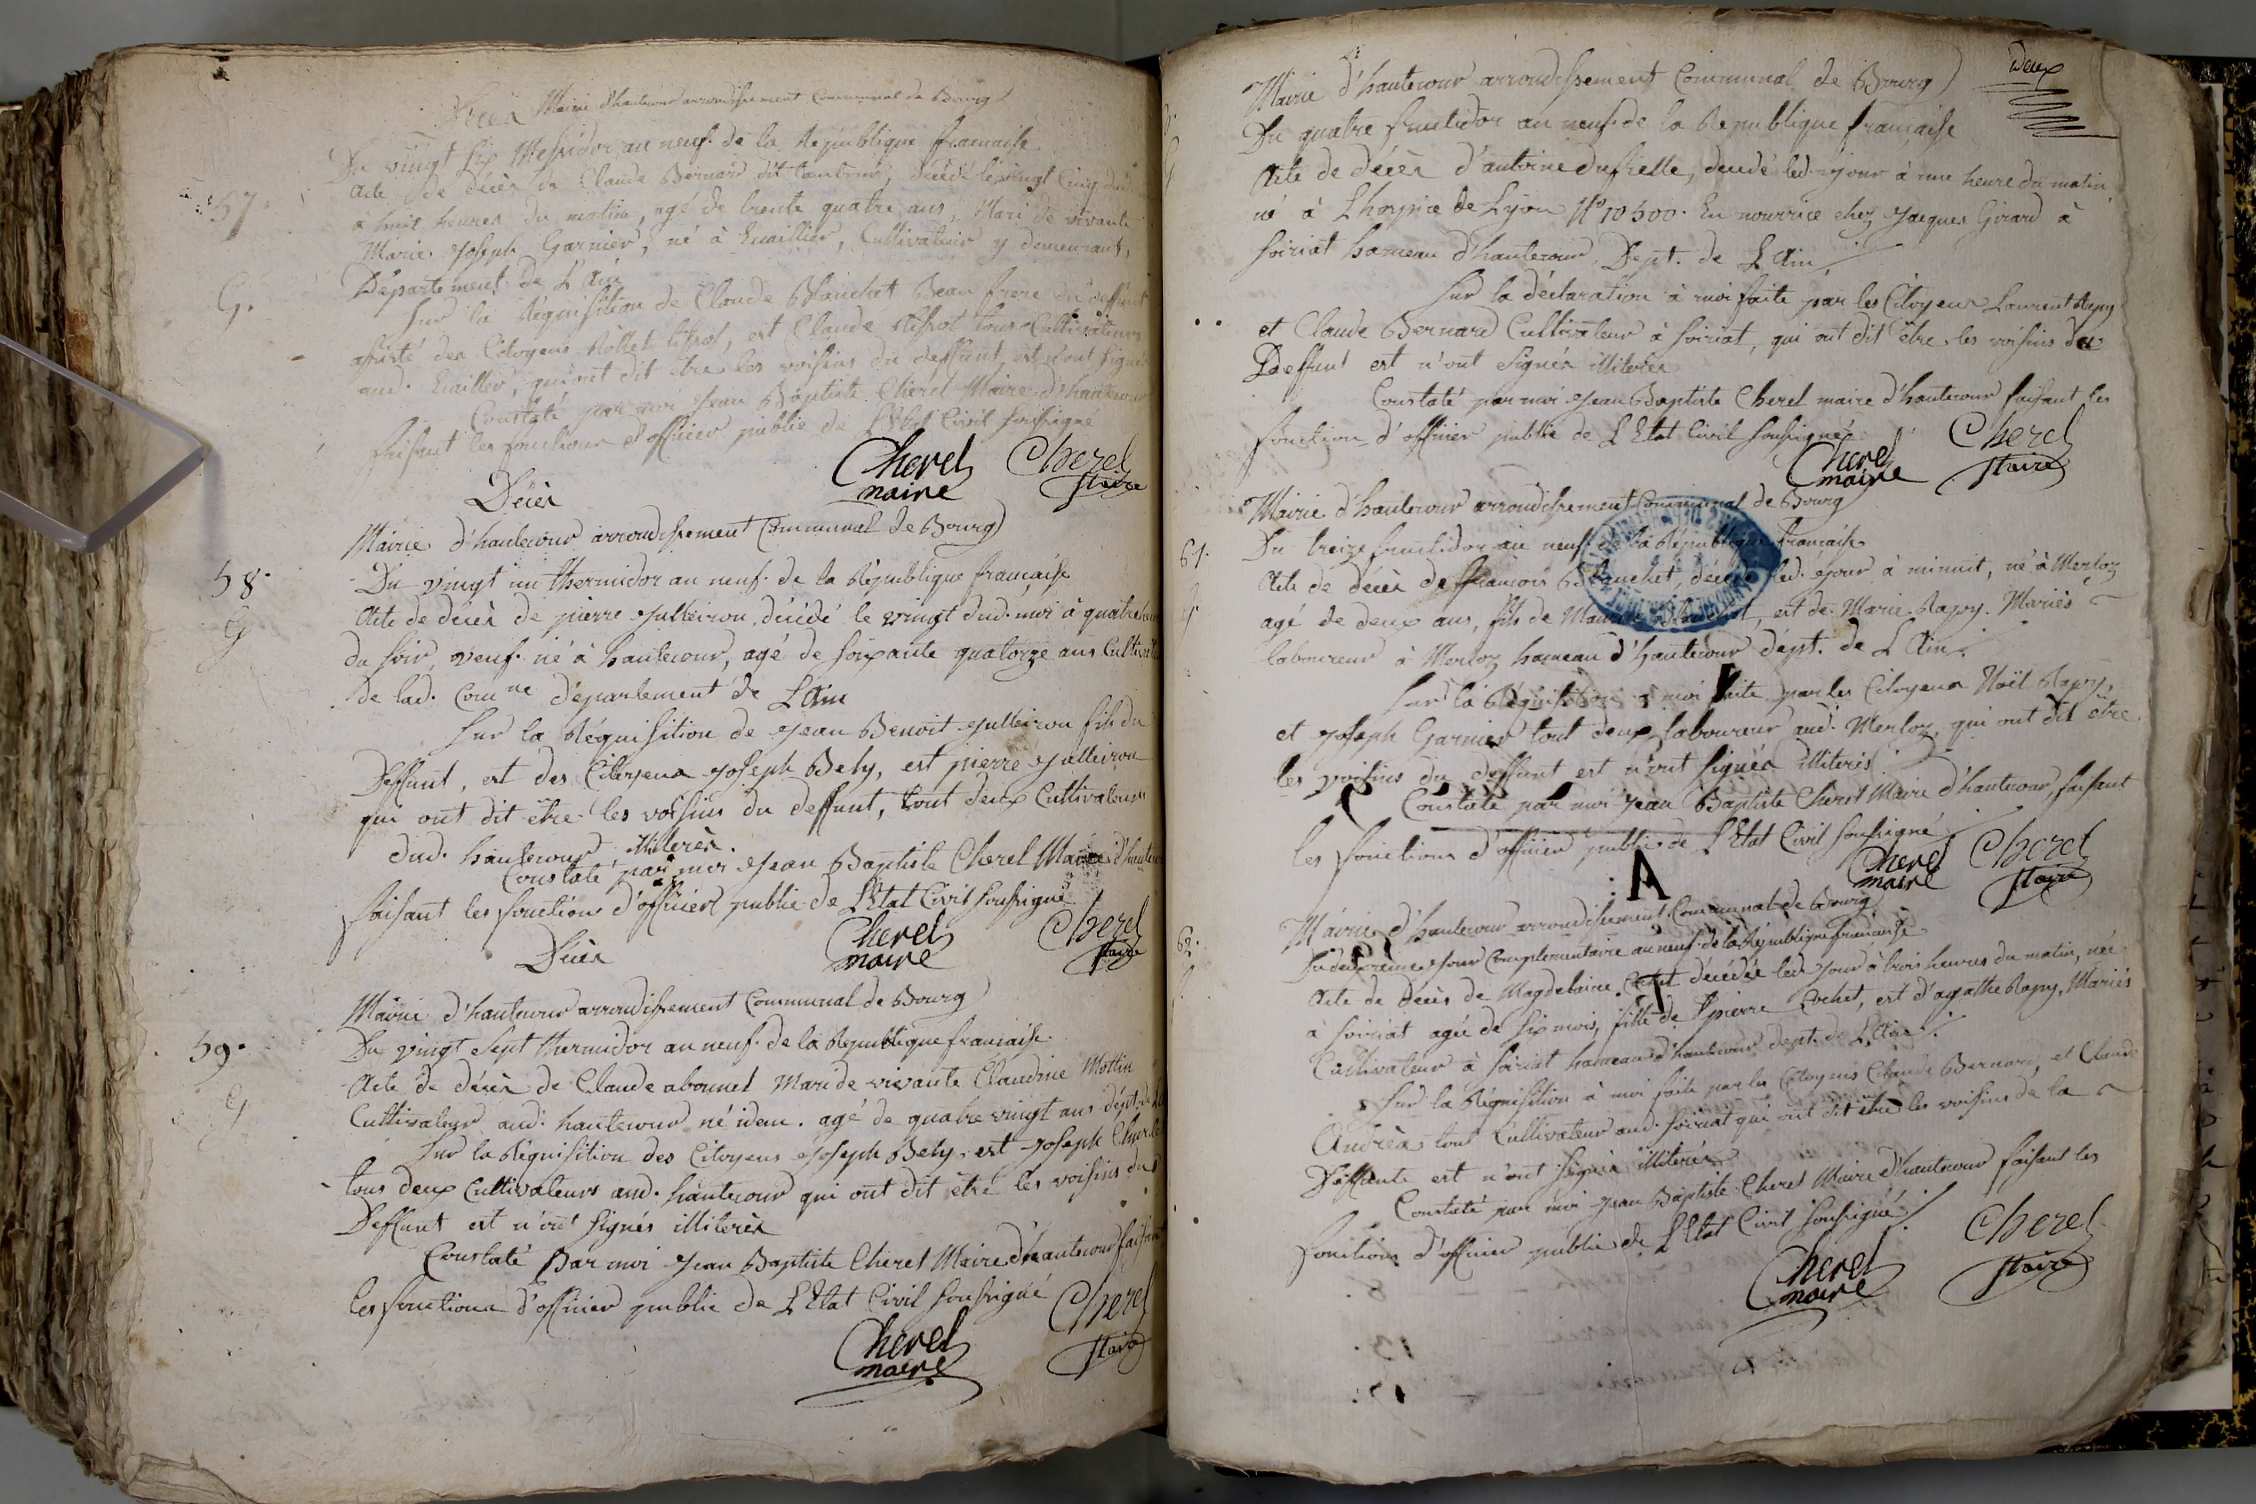 Décès Mairie d'hautecour arrondissement Communal de Bourg
Du vingt six Messidor an neuf de la République française
57.
Acte de décès de Claude Bernard dit tambour, décédé le vingt Cinq dud.
à huit heures du matin, agé de trente quatre ans, Mari de vivante
Marie Joseph Garnier, né à Cuaillier, Cultivateur y demeurant,
Département de L'Ain
G.
Sur la Réquisition de Claude Blanchet Beau frere du deffunt
assisté des Citoyens, est Claude tous Cultivateurs
aud. qui ont dit être les voisins du deffunt, et n'ont signé
Constaté par moi Jean Baptiste Cherel Maire d'hautecour
faisant les fonctions d'officier public de L'Etat Civil soussigné
Cherel Cherel
maire Maire
Décès
Mairie d'hautecour arrondissement Communal de Bourg
58.
Du vingt un thermidor an neuf de la République française
G
Acte de décès de pierre Julleiron décédé le vingt dud. moi à quatre
du soir, veuf né à hautecour, agé de soixante quatorze ans
de lad. Comne département de L'Ain
Sur la Réquisition de Jean Benoit Julleiron fils du
Deffunt, est des Citoyens Joseph Bely, est pierre Julleiron
qui ont dit être les voisins du deffunt, tout deux Cultivateurs
dud. hautecour illiterés.
Constaté par moi Jean Baptiste Cherel Maire
faisant les fonctions d'officier public de L'Etat Civil soussigné
Cherel Cherel
maire Maire
Décès
Mairie d'hautecour arrondissement Communal de Bourg
59.
Du vingt Sept thermidor an neuf de la République française
G
Acte de décès de Claude abonnet Mari de vivante Claudine Mottin
Cultivateur aud. hautecour né idem. agé de quatre vingt ans
Sur la Réquisition des Citoyens Joseph Bely, est Joseph
tous deux Cultivateurs aud. hautecour qui ont dit être les voisins du
Deffunt est n'ont signés illiterés
Constaté Par moi Jean Baptiste Cherel Maire d'hautecour faisant
les fonctions d'officier public de L'Etat Civil soussigné
Cherel Cherel
maire Maire
Deux
Mairie d'hautecour arrondissement Communal de Bourg
Du quatre fructidor an neuf de la République française
Acte de décès d'antoine dufrelle, décédé led. jour à une heure du matin
né à L'hospice de Lyon No 10500. En nourrice chez Jacques Girard à
soiriat hameau d'hautecour Dept. de L'Ain
Sur la déclaration à moi faite par les Citoyens Laurent Rapy
et Claude Bernard Cultivateur à soiriat, qui ont dit être les voisins du
Deffunt est n'ont signés illiterés
Constaté par moi Jean Baptiste Cherel maire d'hautecour faisant les
fonction d'officier public de L'Etat Civil soussigné
Cherel Cherel
maire Maire
Mairie d'hautecour arrondissement Communal de Bourg
61.
Du treize fructidor an neuf de la République française
Acte de décès de françois Blanchet, décédé led. jour à minuit, né à Merloz
agé de deux ans, fils de Maurice Blanchet, est de Marie Rapy. Mariés
laboureur à Merloz hameau d'hautecour dépt. de L'Ain.
Sur la Réquisition à moi faite par les Citoyens Noël Rapy,
et Joseph Garnier tout deux laboureur aud. Merloz, qui ont dit être
les voisins du deffunt est n'ont signés illiterés
Constaté par moi Jean Baptiste Cherel Maire d'hautecour, faisant
les fonctions d'officier public de L'Etat Civil soussigné
Cherel Cherel
maire Maire
Mairie d'hautecour arrondissement Communal de Bourg
62.
Du deuxieme Jour Complementaire an neuf de la République française
Acte de décès de Magdelaine Cochet décédée led. jour à trois heures du matin, née
à soiriat agée de six mois, fille de pierre Cochet, est d'agathe Rapy, Mariés
Cultivateur à soiriat hameau d'hautecour dept. de L'Ain.
Sur la Réquisition à moi faite par les Citoyens Claude Bernard, et Claude
Andréa tout Cultivateur aud. soiriat qui ont dit être les voisins de la
Deffunte est n'ont signés illiterés
Constaté par moi Jean Baptiste Cherel Maire d'hautecour faisant les
fonctions d'officier public de L'Etat Civil soussigné
Cherel Cherel
maire Maire